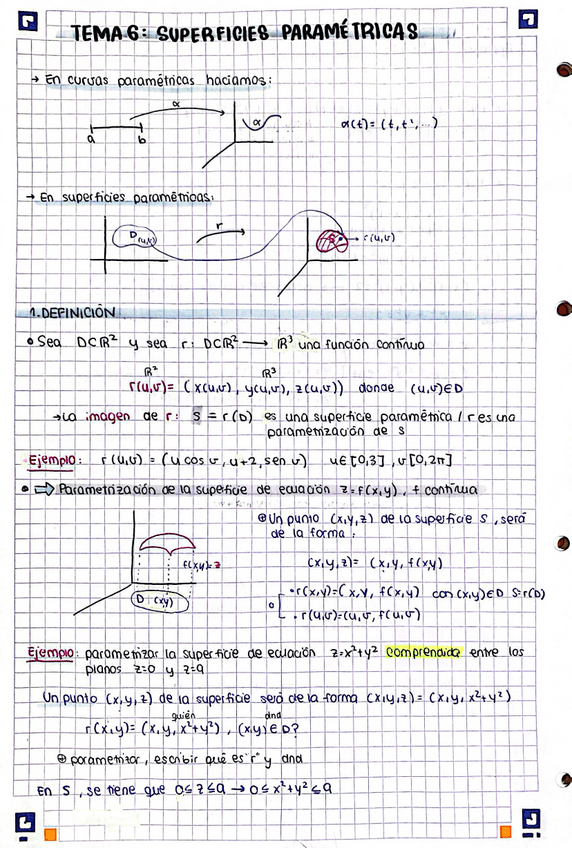 TEMA 6: SUPERFICIES PARAMÉTRICAS
→ En curvas paramétricas hacíamos:
α
a b
α
α(t) = (t, t², ...)
→ En superficies paramétricas:
D (u,v)
r
S → r(u,v)
1. DEFINICIÓN
• Sea D⊂ℝ² y sea r: D⊂ℝ² → ℝ³ una función continua
ℝ² ℝ³
r(u,v) = (x(u,v), y(u,v), z(u,v)) donde (u,v)∈D
→ La imagen de r: S = r(D) es una superficie paramétrica / r es una
parametrización de S
Ejemplo: r(u,v) = (u cos v, u+2, sen v) u∈[0,3], v[0,2π]
• ⇨ Parametrización de la superficie de ecuación z=f(x,y), f continua
⊕ Un punto (x,y,z) de la superficie S, será
de la forma:
(x,y,z) = (x,y, f(x,y)
f(x,y)=z
D (x,y)
• r(x,y)=(x,y, f(x,y) con (x,y)∈D S=r(D)
o
• r(u,v)=(u,v, f(u,v)
Ejemplo: parametrizar la superficie de ecuación z=x²+y² comprendida entre los
planos z=0 y z=9
Un punto (x,y,z) de la superficie será de la forma (x,y,z) = (x,y, x²+y²)
quién dnd
r(x,y) = (x,y, x²+y²), (x,y)∈D?
⊕ parametrizar, escribir qué es "r" y dnd
En S, se tiene que 0≤z≤9 → 0≤x²+y²≤9